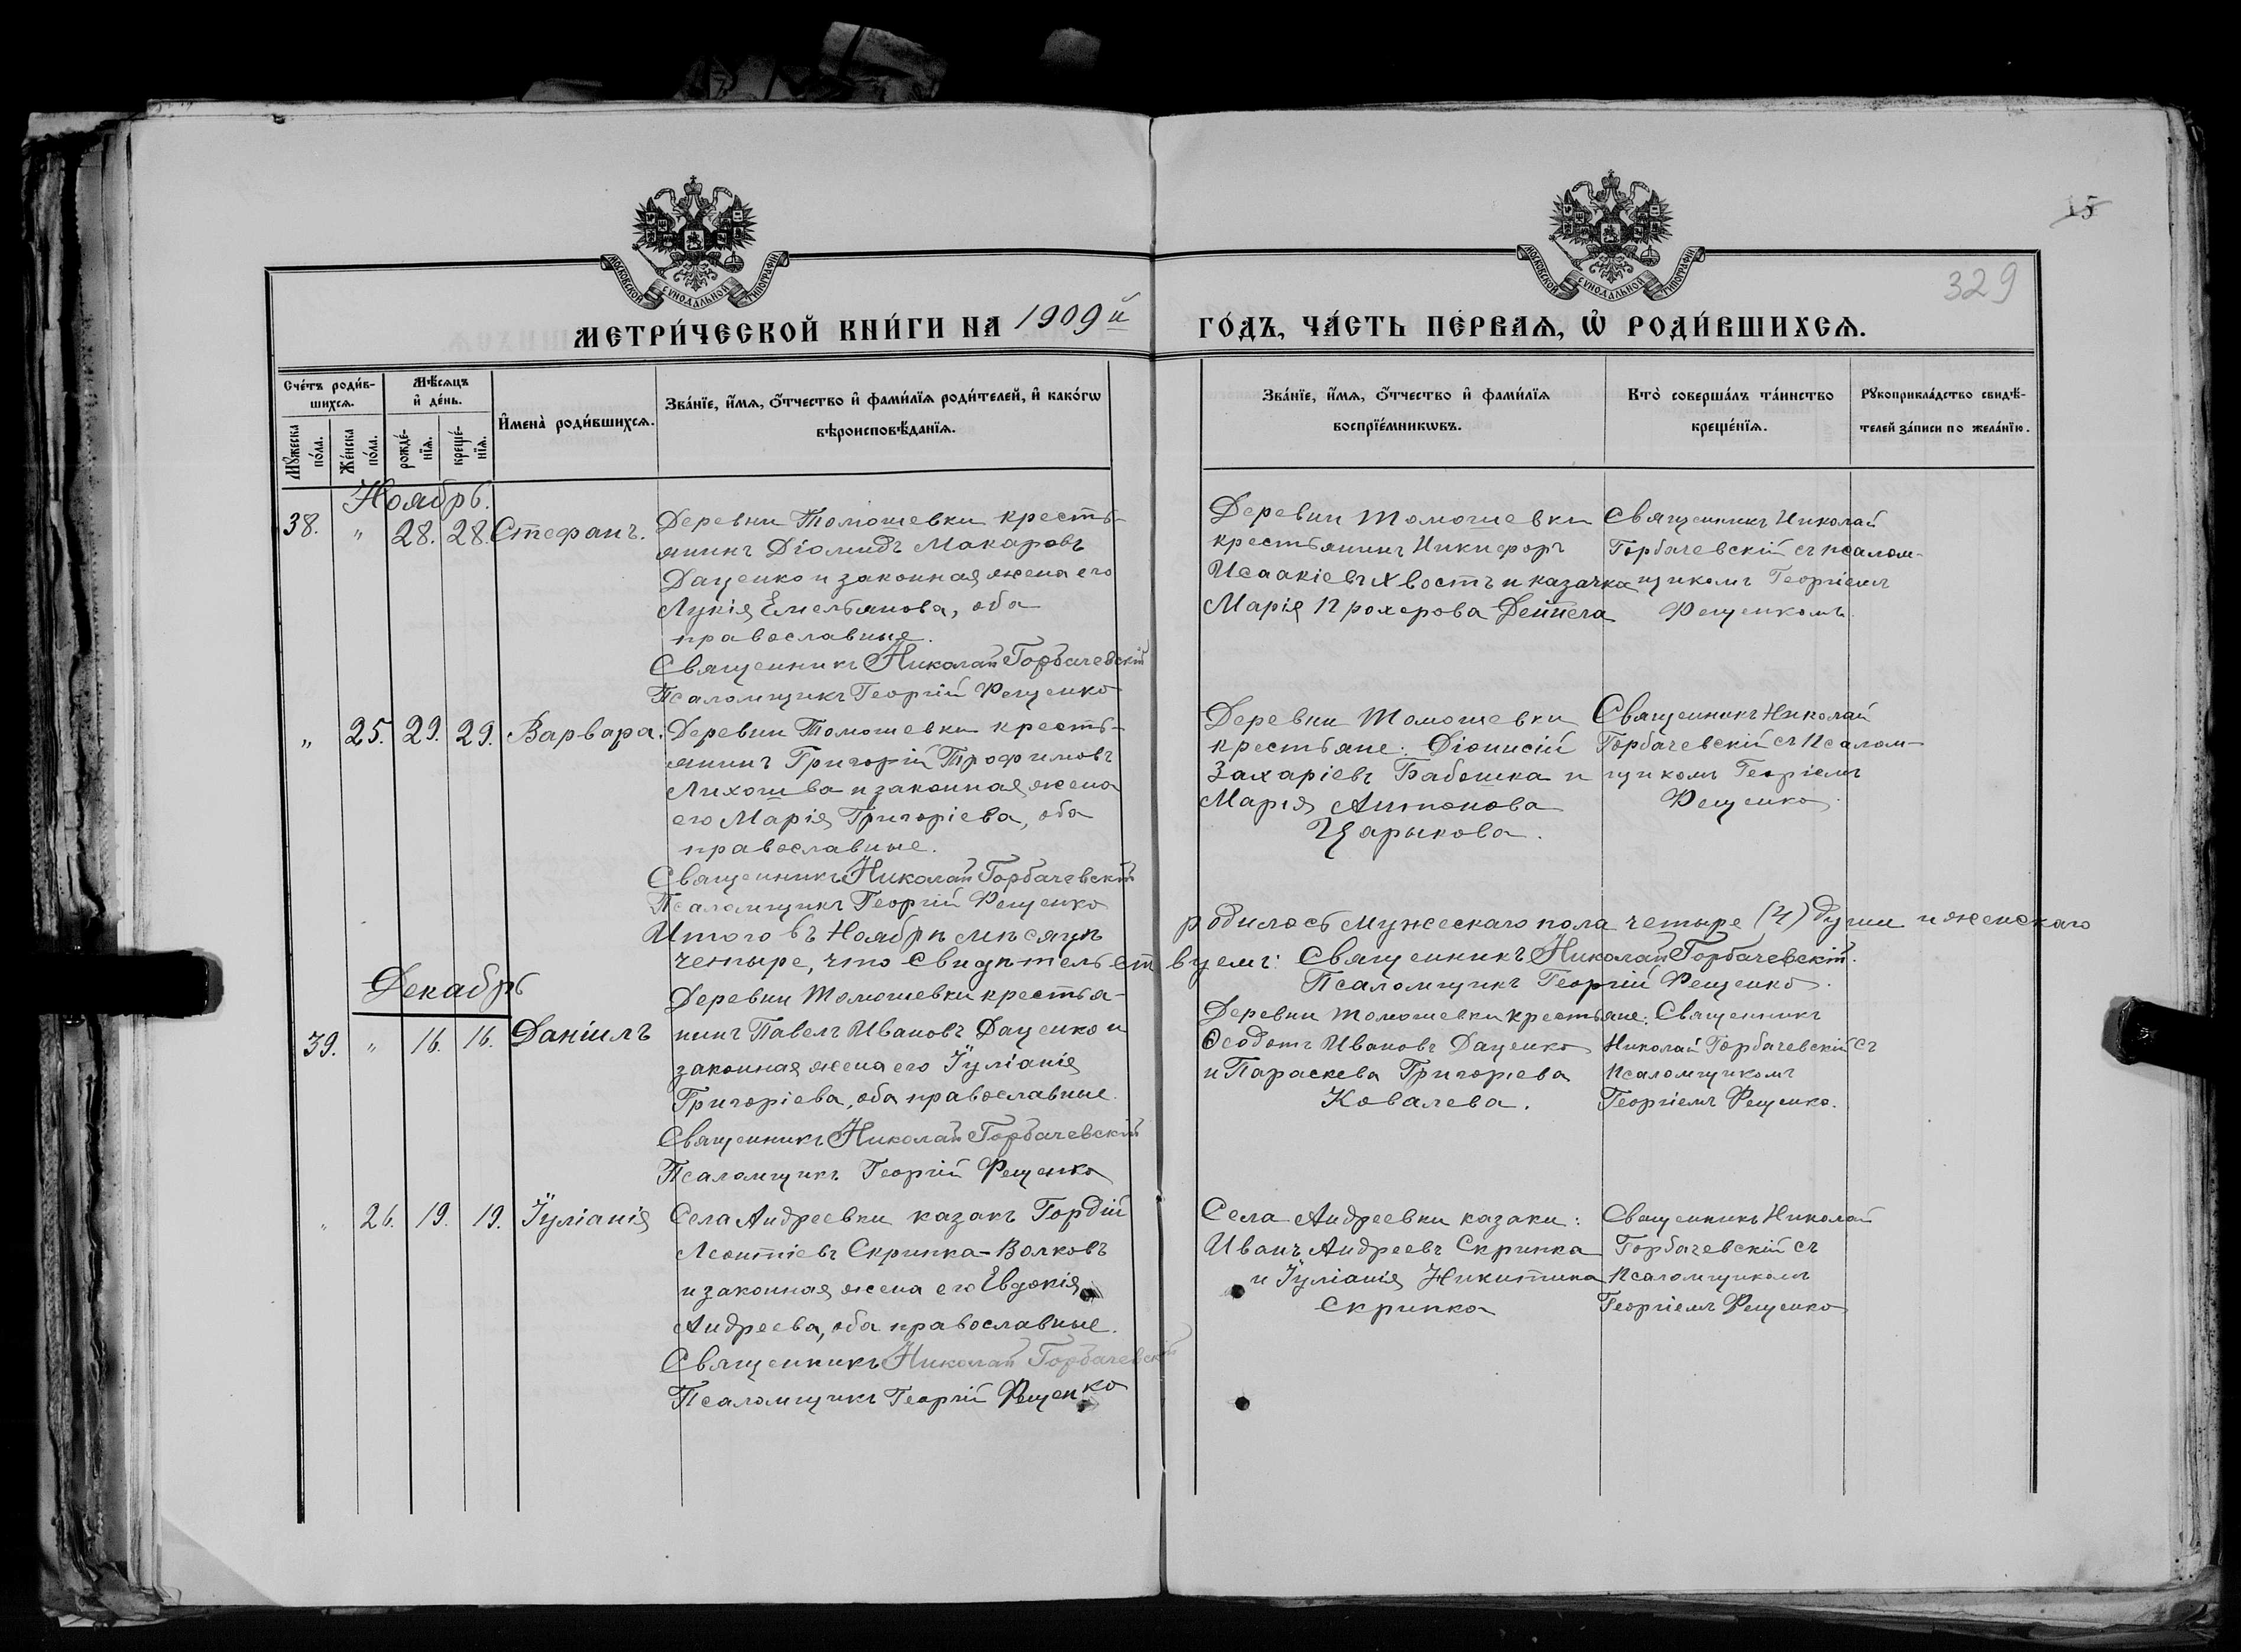 15
329
МОСКОВСКОЙ СѴНОДАЛЬНОЙ ТИПОГРАФІИ
МОСКОВСКОЙ СѴНОДАЛЬНОЙ ТИПОГРАФІИ
МЕТРИ́ЧЕСКОЙ КНИ́ГИ НА 1909й ГО́ДЪ, ЧА́СТЬ ПЕ́РВАѦ, Ѽ РОДИ́ВШИХСѦ.
Сче́тъ роди́в-
шихсѧ.
Мѣ́сѧцъ
и҆ де́нь.
Мꙋ́жеска
по́ла.
Же́нска
по́ла.
рожде́-
нїѧ.
креще́-
нїѧ.
И҆мена̀ роди́вшихсѧ.
Зва́нїе, и҆́мѧ, ѻ҆́тчество и҆ фами́лїѧ роди́телей, и҆ како́гѡ
вѣроисповѣ́данїѧ.
Зва́нїе, и҆́мѧ, ѻ҆́тчество и҆ фами́лїѧ
воспрїе́мникѡвъ.
Кто̀ соверша́лъ та́инство
креще́нїѧ.
Рꙋкоприкла́дство свидѣ́-
телей за́писи по жела́нїю.
Ноябрь.
38. " 28. 28. Стефанъ.
Деревни Томошевки кресть-
янинъ Діомидъ Макаровъ
Даценко и законная жена его
Лукія Емельянова, оба
православные.
Священникъ Николай Горбачевскій
Псаломщикъ Георгій Фещенко
Деревни Томошевки
крестьянинъ Никифоръ
Исаакіевъ Хвостъ и казачка
Марія Прохорова Дейнега
Священникъ Николай
Горбачевскій съ псалом-
щикомъ Георгіемъ
Фещенкомъ.
" 25. 29. 29. Варвара.
Деревни Томошевки кресть-
янинъ Григорій Трофимовъ
Лихошва и законная жена
его Марія Григоріева, оба
православные.
Священникъ Николай Горбачевскій
Псаломщикъ Георгій Фещенко
Деревни Томошевки
крестьяне: Діонисій
Захаріевъ Бабешка и
Марія Антонова
Царыкова.
Священникъ Николай
Горбачевскій съ Псалом-
щикомъ Георгіемъ
Фещенко.
Итого въ Ноябрѣ мѣсяцѣ родилось мужескаго пола четыре (4) души и женскаго
четыре, что свидѣтельствуемъ: Священникъ Николай Горбачевскій.
Псаломщикъ Георгій Фещенко.
Декабрь
39. " 16. 16. Даніилъ
Деревни Томошевки крестья-
нинъ Павелъ Ивановъ Даценко и
законная жена его Іуліанія
Григоріева, оба православные.
Священникъ Николай Горбачевскій
Псаломщикъ Георгій Фещенко
Деревни Томошевки крестьяне:
Ѳеодотъ Ивановъ Даценко
и Параскева Григорьева
Ковалева.
Священникъ
Николай Горбачевскій съ
Псаломщикомъ
Георгіемъ Фещенко.
" 26. 19. 19. Іуліанія
Села Андреевки казакъ Гордій
Леонтіевъ Скрипка-Волковъ
и законная жена его Евдокія
Андреева, оба православные.
Священникъ Николай Горбачевскій
Псаломщикъ Георгій Фещенко
Села Андреевки казаки:
Иванъ Андреевъ Скрипка
и Іуліанія Никитина
Скрипка
Священникъ Николай
Горбачевскій съ
Псаломщикомъ
Георгіемъ Фещенко